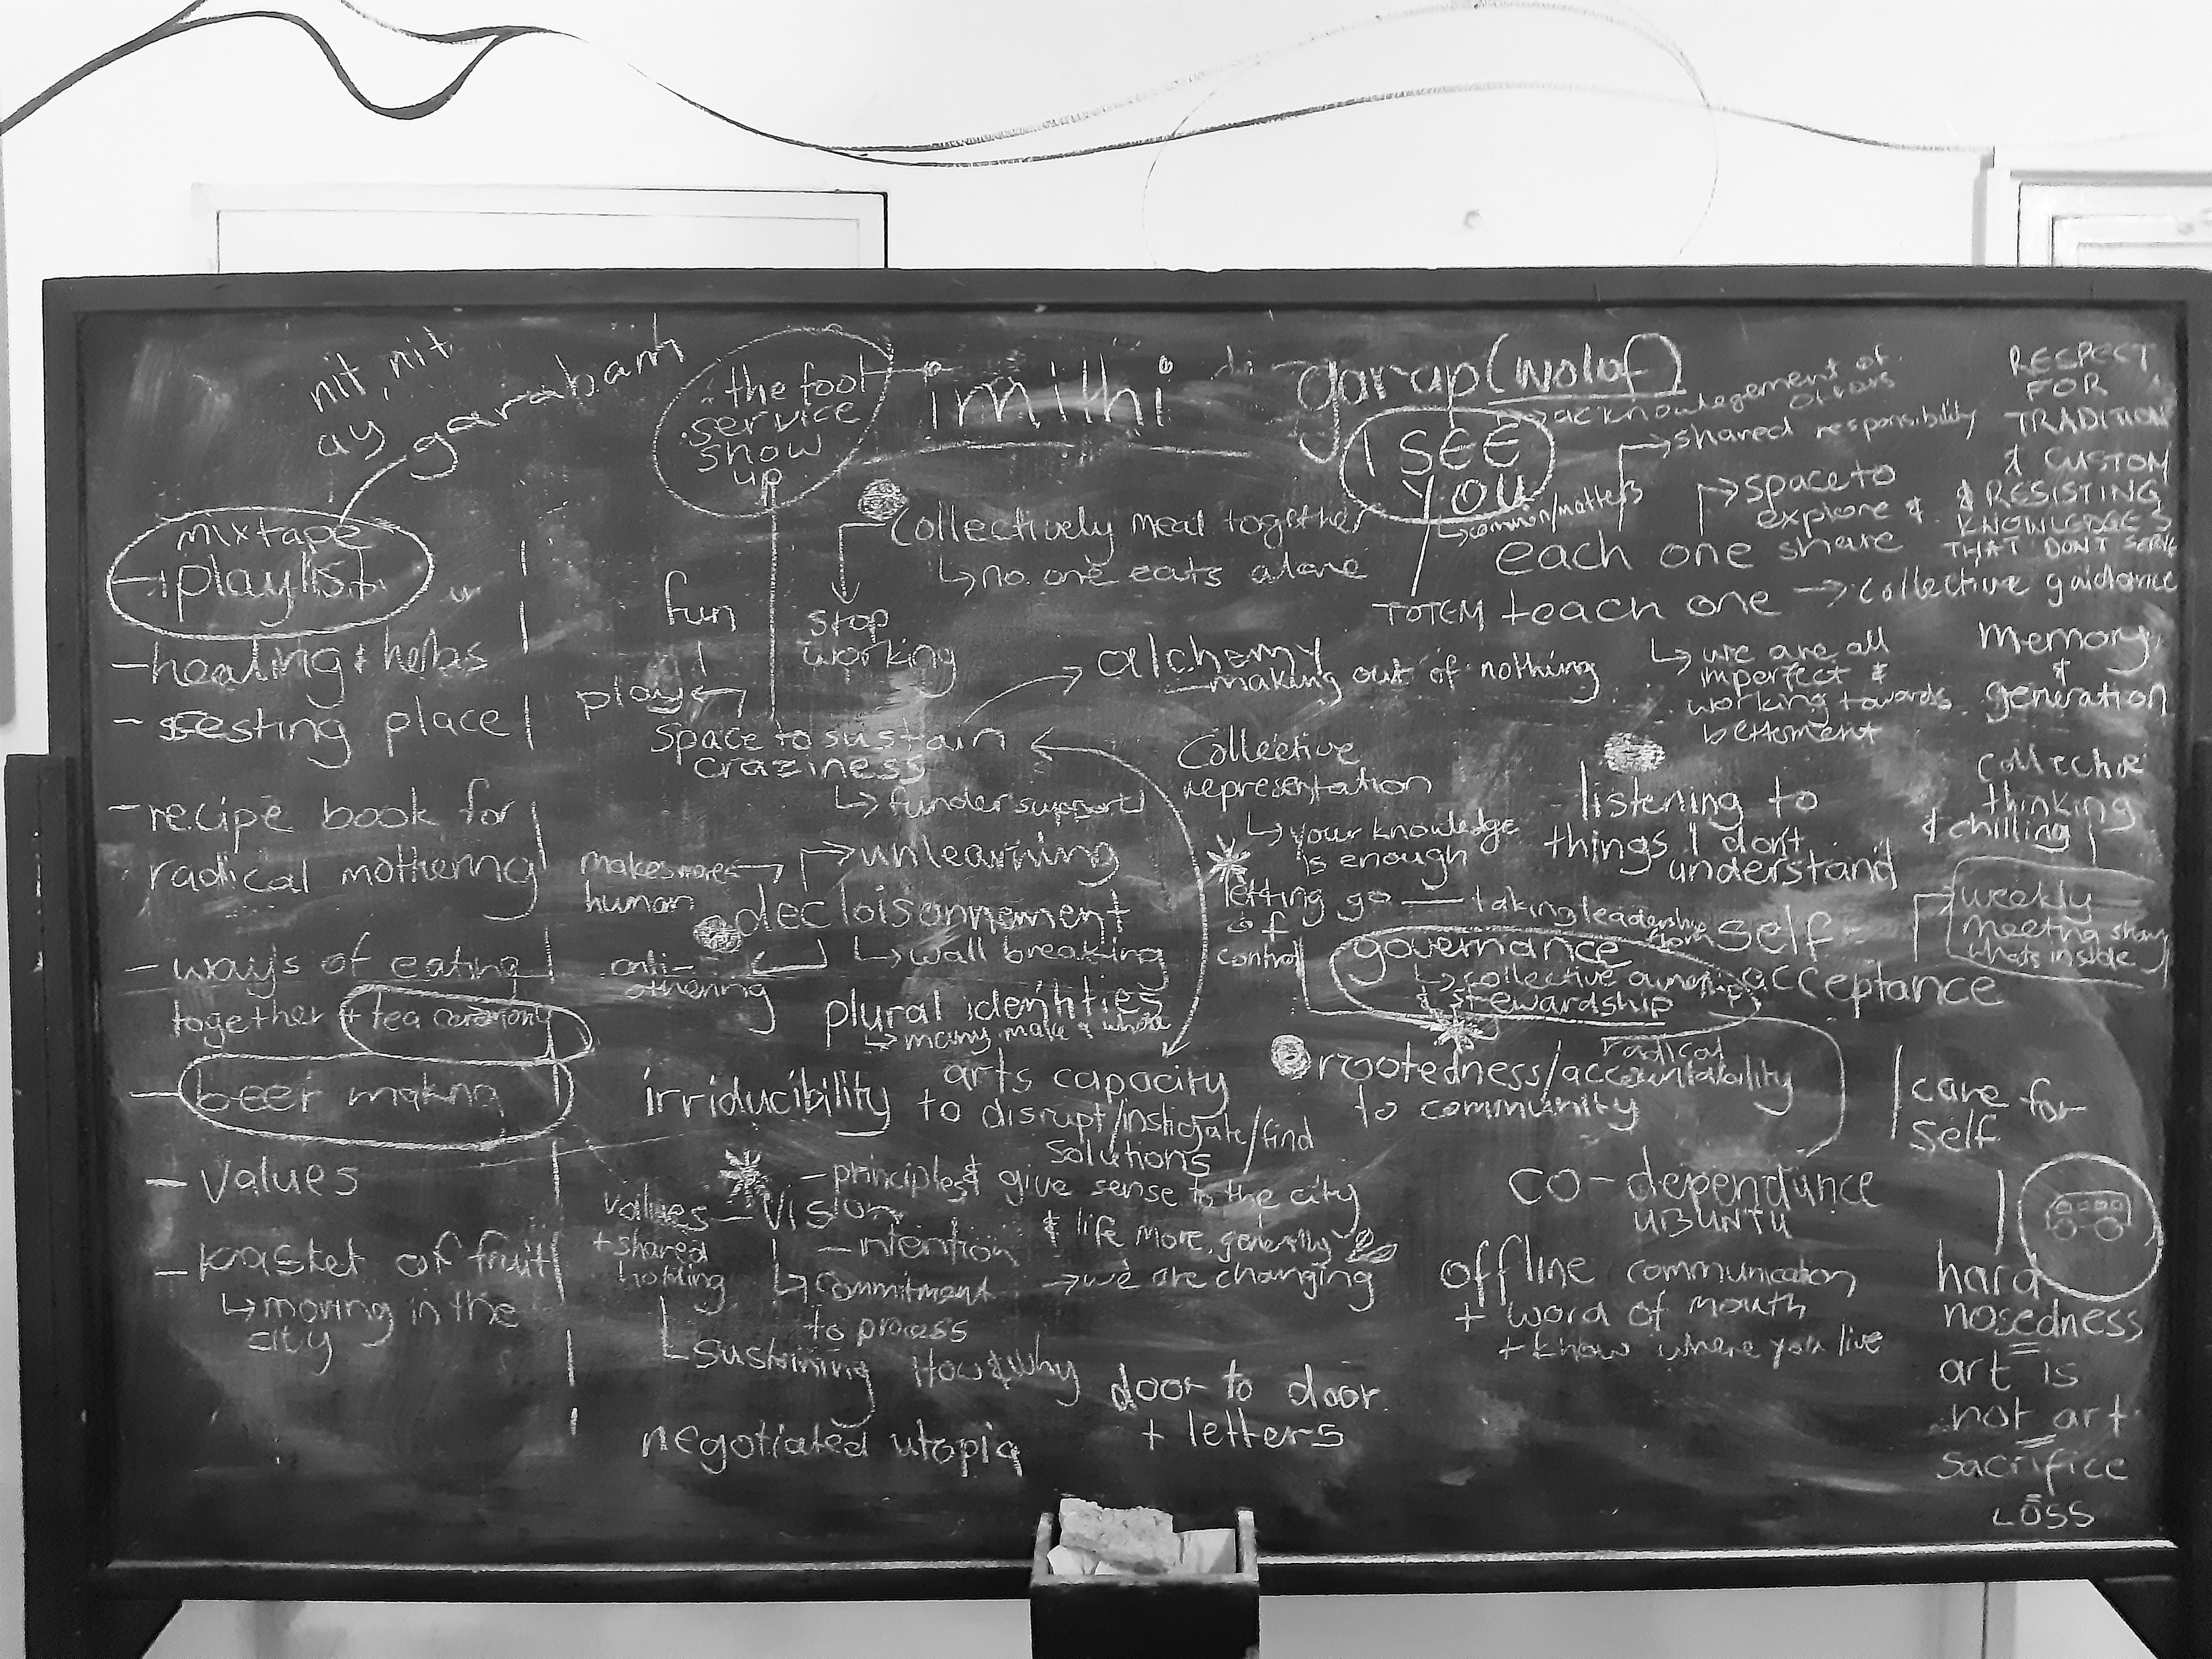 nit, nit
ay garabam
mixtape
playlist
- healing + herbs
- resting place
- recipe book for
radical mothering
- ways of eating
together + tea ceremony
- beer making
- values
- basket of fruit
↳ moving in the
city
the fool
service
show
up
imithi
garap (wolof)
collectively meal together
↳ no one eats alone
stop
working
fun
play
space to sustain
craziness
↳ funder support
alchemy
- making out of nothing
makes more
human
unlearning
decloisonnement
↳ wall breaking
anti-
othering
plural identities
↳ many make a whole
irriducibility
arts capacity
to disrupt/instigate/find
solutions
values - vision
+ shared
holding
- principles
- intention
↳ commitment
to process
sustaining How & why
& give sense to the city
& life more generally
→ we are changing
negotiated utopia
door to door
+ letters
I SEE
YOU
acknowlegement of
shared responsibility
↳ common/matters
space to
explore &
each one share
TOTEM teach one → collective guidance
↳ we are all
imperfect &
working towards
betterment
collective
representation
↳ your knowledge
is enough
letting go — taking leadership from self
of
control
listening to
things I don't
understand
governance
↳ collective
& stewardship
acceptance
rootedness/radical accountability
to community
co-dependance
UBUNTU
offline communication
+ word of mouth
+ know where you live
RESPECT
FOR
TRADITION
& CUSTOM
& RESISTING
KNOWLEDGES
THAT DON'T SERVE
memory
&
generation
collective
thinking
& chilling
weekly
meeting share
whats inside
care for
self
hard
nosedness
=
art is
not art
=
sacrifice
=
LOSS